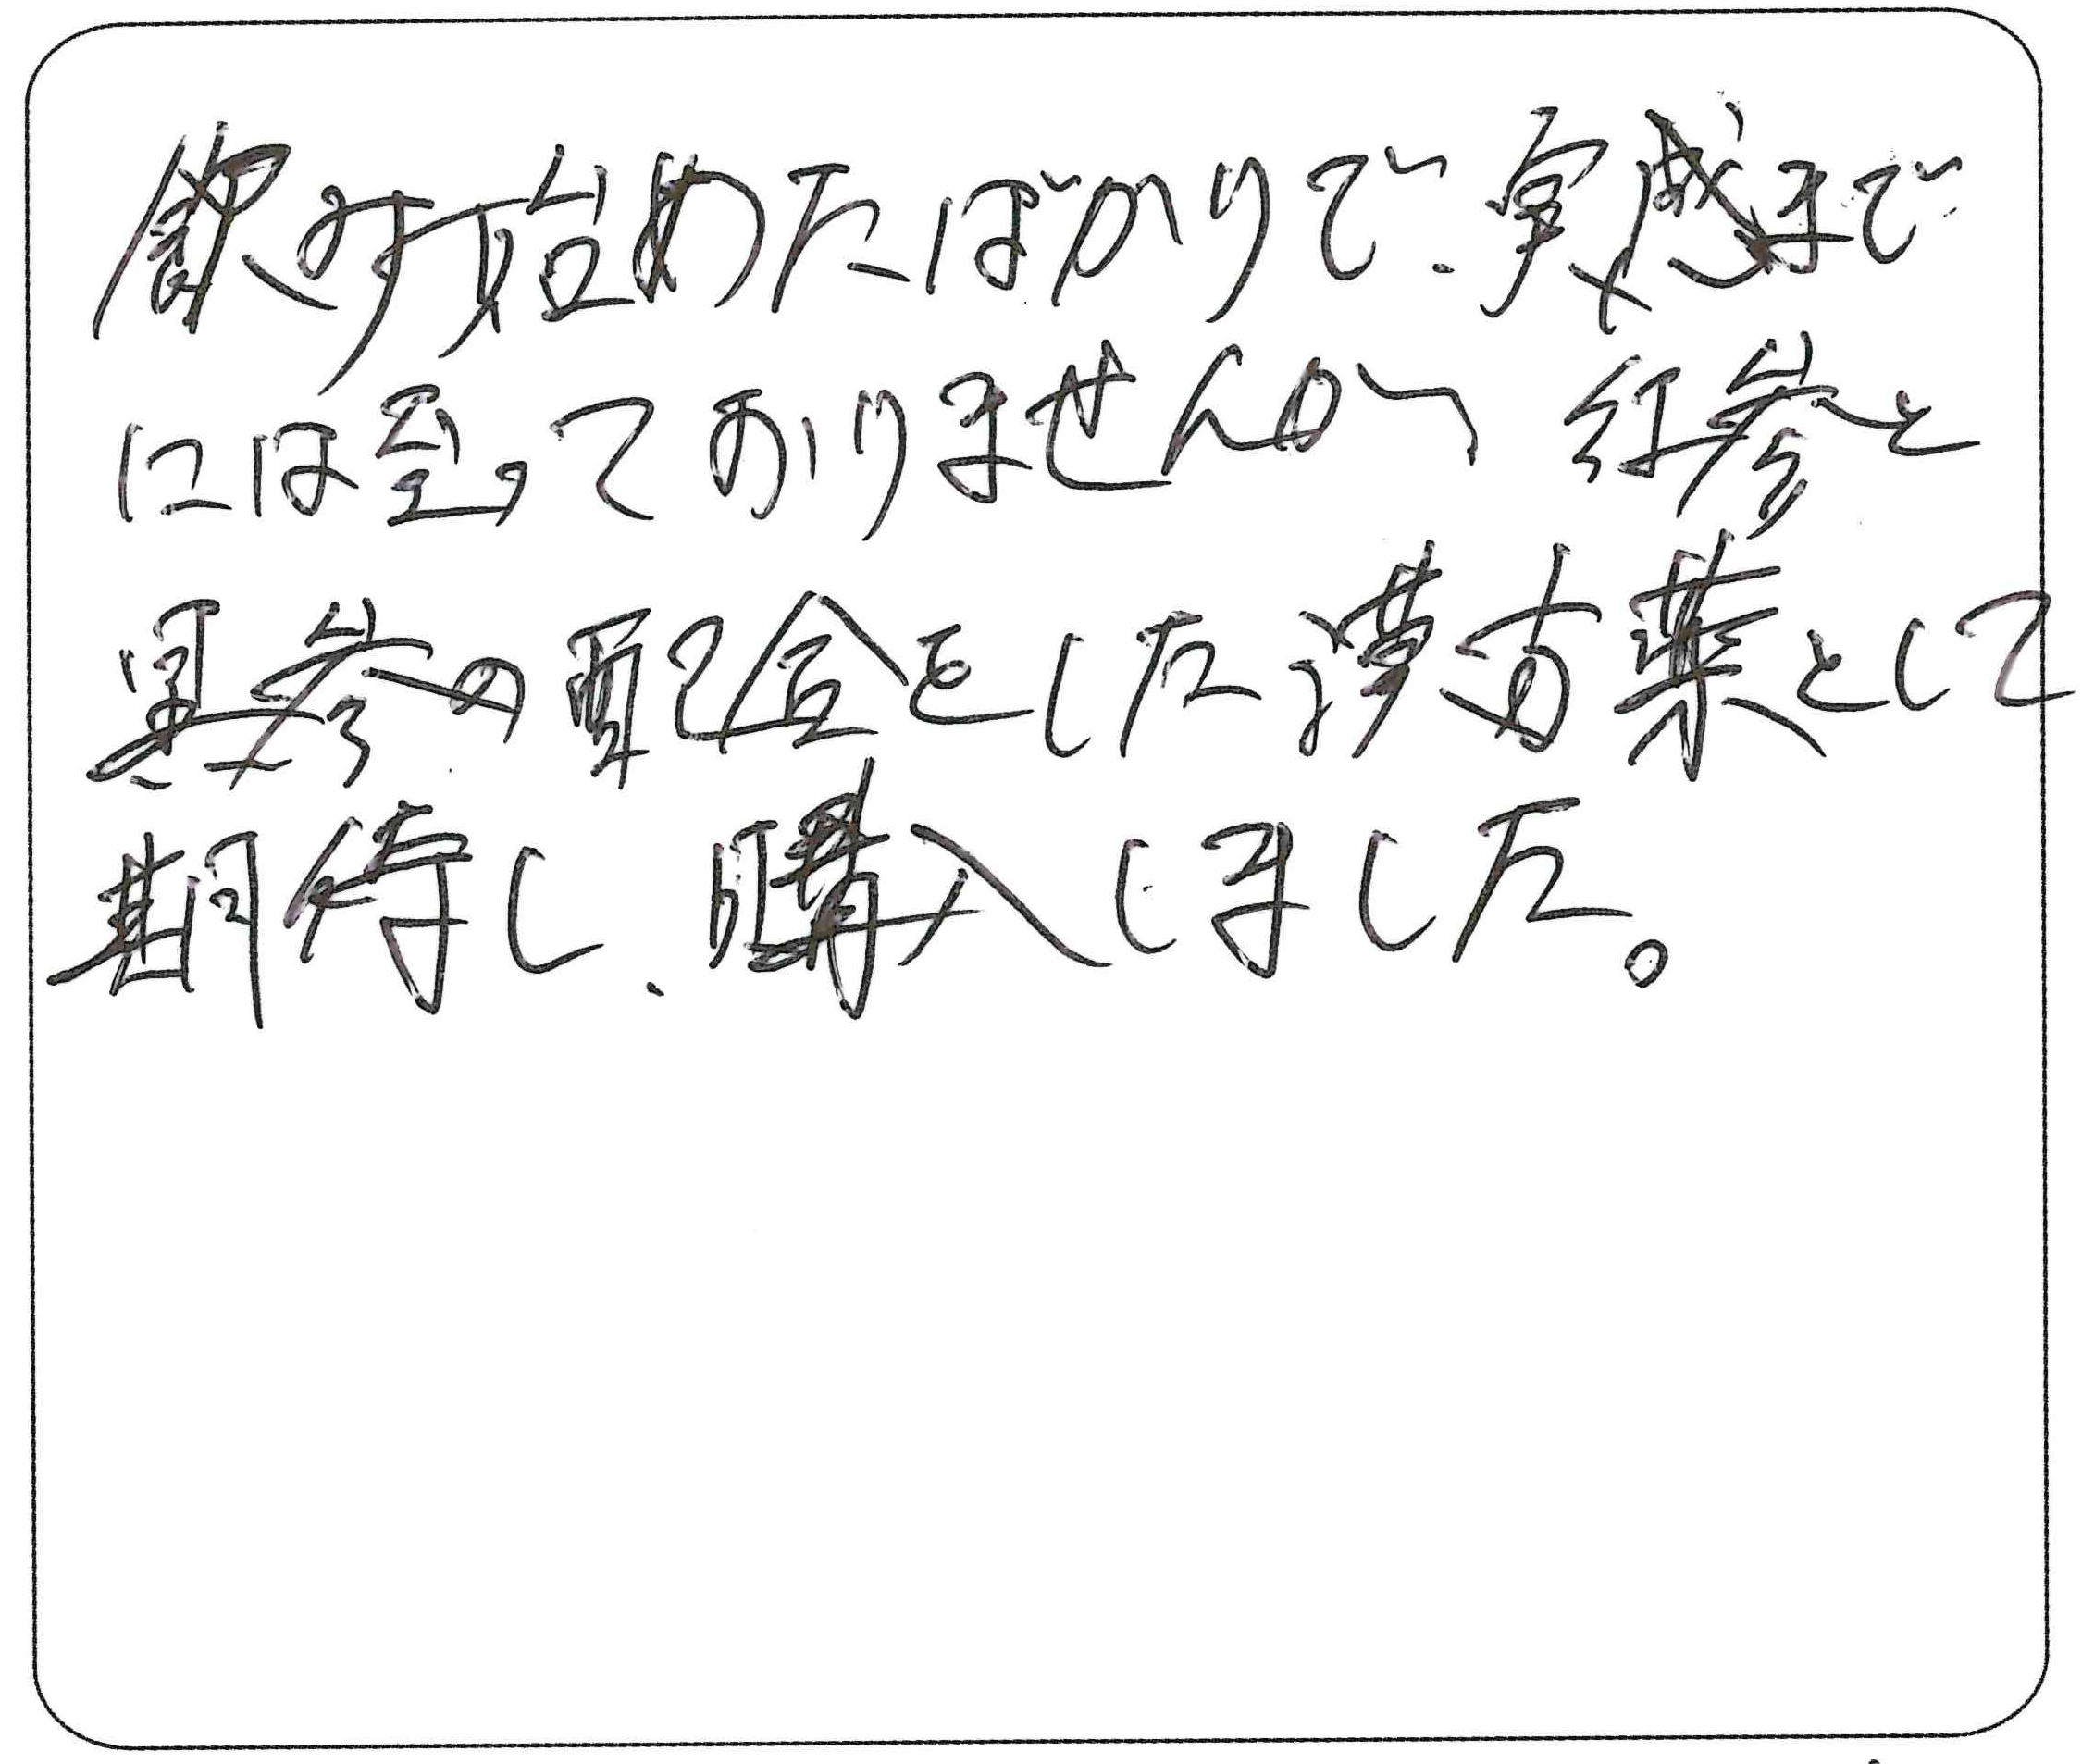 飲み始めたばかりで、実感まで
には至っておりませんが、紅参と
黒参の配合をした漢方薬として
期待し、購入しました。